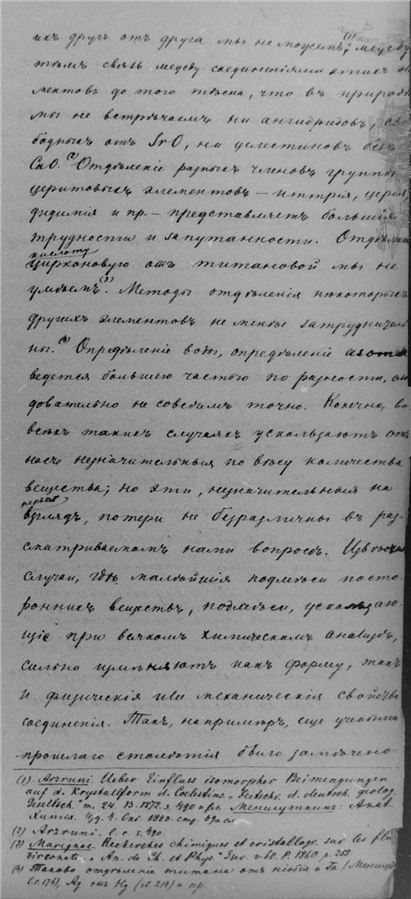 ихъ другъ отъ друга мы не можемъ; (1) между
тѣмъ связь между соединеніями этихъ эле
ментовъ до того тѣсна, что въ природѣ
мы не встрѣчаемъ ни ангидридовъ, сво
бодныхъ отъ SrO, ни целестиновъ безъ
CaO. (2) Отдѣленіе разныхъ членовъ группы
церитовыхъ элементовъ — иттрія, церія,
дидимія и пр. — представляетъ большія
трудности и запутанности. Отдѣлить
кислоту
цирконовую отъ титановой мы не
умѣемъ (3). Методы отдѣленія нѣкоторыхъ
другихъ элементовъ не менѣе затруднитель
ны. (4) Опредѣленіе воды, опредѣленіе азота
ведется большею частью по разности, слѣ
довательно не совсѣмъ точно. Конечно, во
всѣхъ такихъ случаяхъ ускользаютъ отъ
насъ незначительныя по вѣсу количества
вещества; но эти, незначительныя на
первый
взглядъ, потери не безразличны въ раз
сматриваемомъ нами вопросѣ. Извѣстны
случаи, гдѣ малѣйшія подмѣси посто
роннихъ веществъ, подмѣси, ускользаю
щіе при всякомъ химическомъ анализѣ,
сильно измѣняютъ какъ форму, такъ
и физическія или механическія свойства
соединенія. Такъ, напримѣръ, еще учеными
прошлаго столѣтія было замѣчено
(1) Arzruni. Ueber Einfluss isomorpher Beimengungen
auf d. Krystallform d. Coelestins. Zeitschr. d. deutsch. geolog.
Gesellsch. т. 24. В. 1872. s. 490 Меншуткинъ: Анал.
Химія. 4. Спб. 1880.
(2) Arzruni. l. c. s. 490.
(3) Marignac. Recherches chimiques et cristallogr. sur les fluo
zirconates. An. de Ch. et Phys. Sér. v. 60. P. 1860. p. 258.
(4) Таково отдѣленіе титана отъ ніобія и Ta (Меншутк.
l. c. 176), Ag отъ Hg (id 214) и пр.